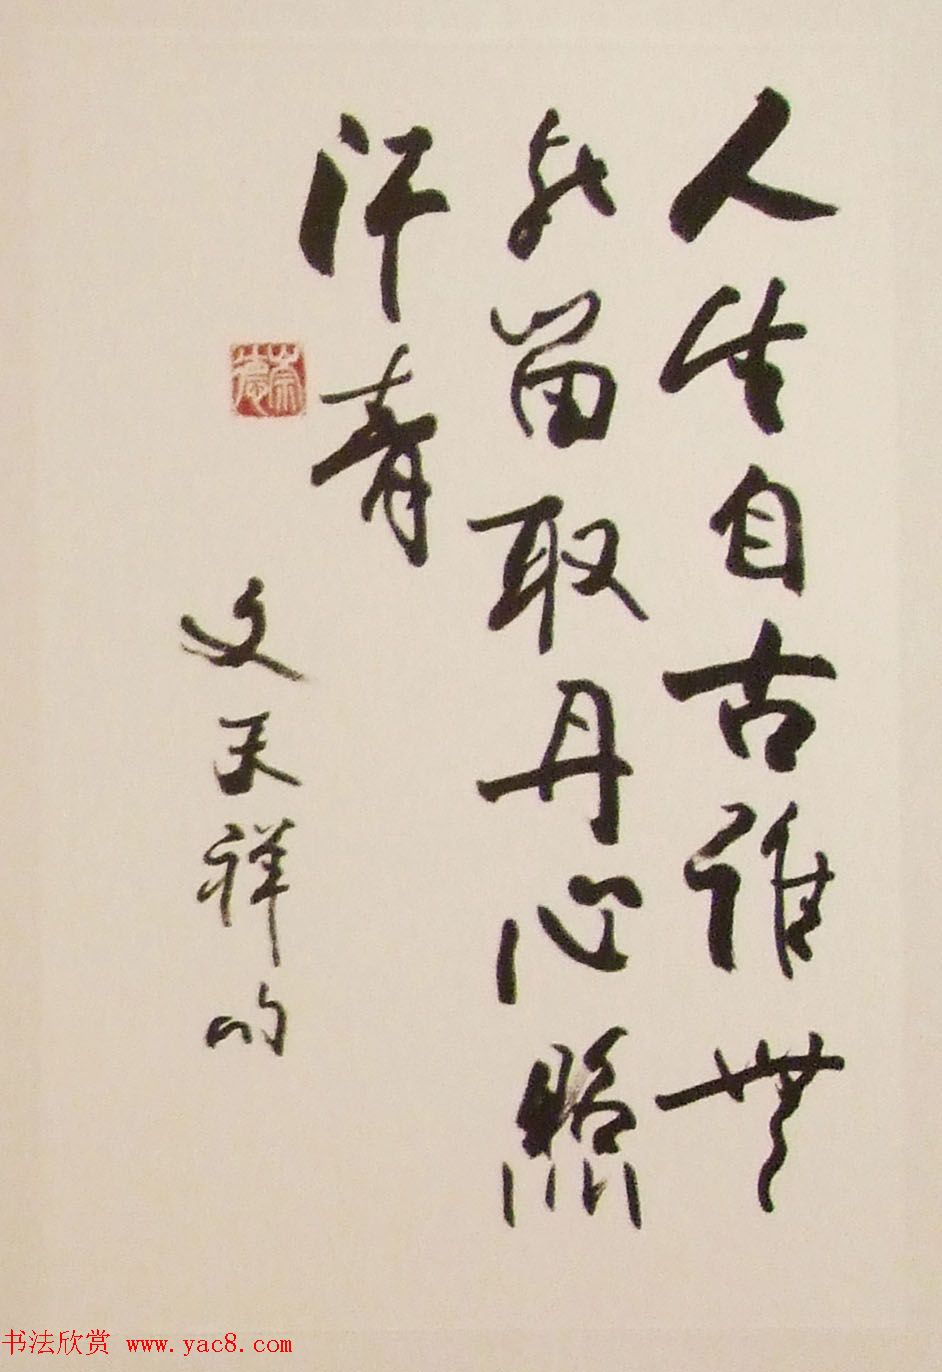 人生自古誰無
死留取丹心照
汗青
文天祥句
崇德
书法欣赏 www.yac8.com